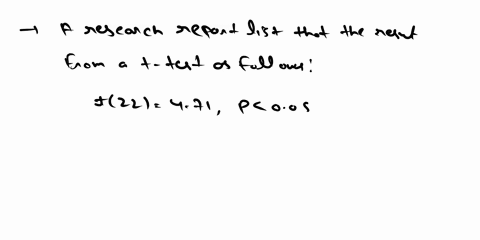 → A research report list that the result
from a t-test as follows:
t(22) = 4.71, P < 0.05